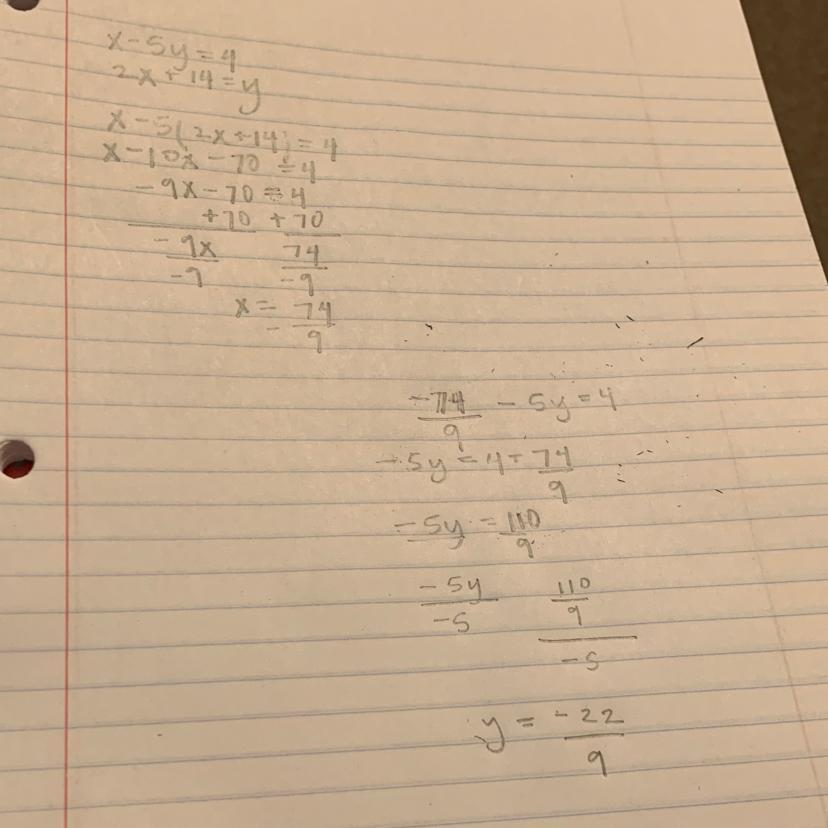 x - 5y = 4
2x + 14 = y
x - 5(2x + 14) = 4
x - 10x - 70 = 4
- 9x - 70 = 4
+ 70 + 70
- 9x 74
-9 -9
x = - 74
9
-74 - 5y = 4
9
- 5y = 4 + 74
9
- 5y = 110
9
- 5y 110
-5 9
-5
y = - 22
9